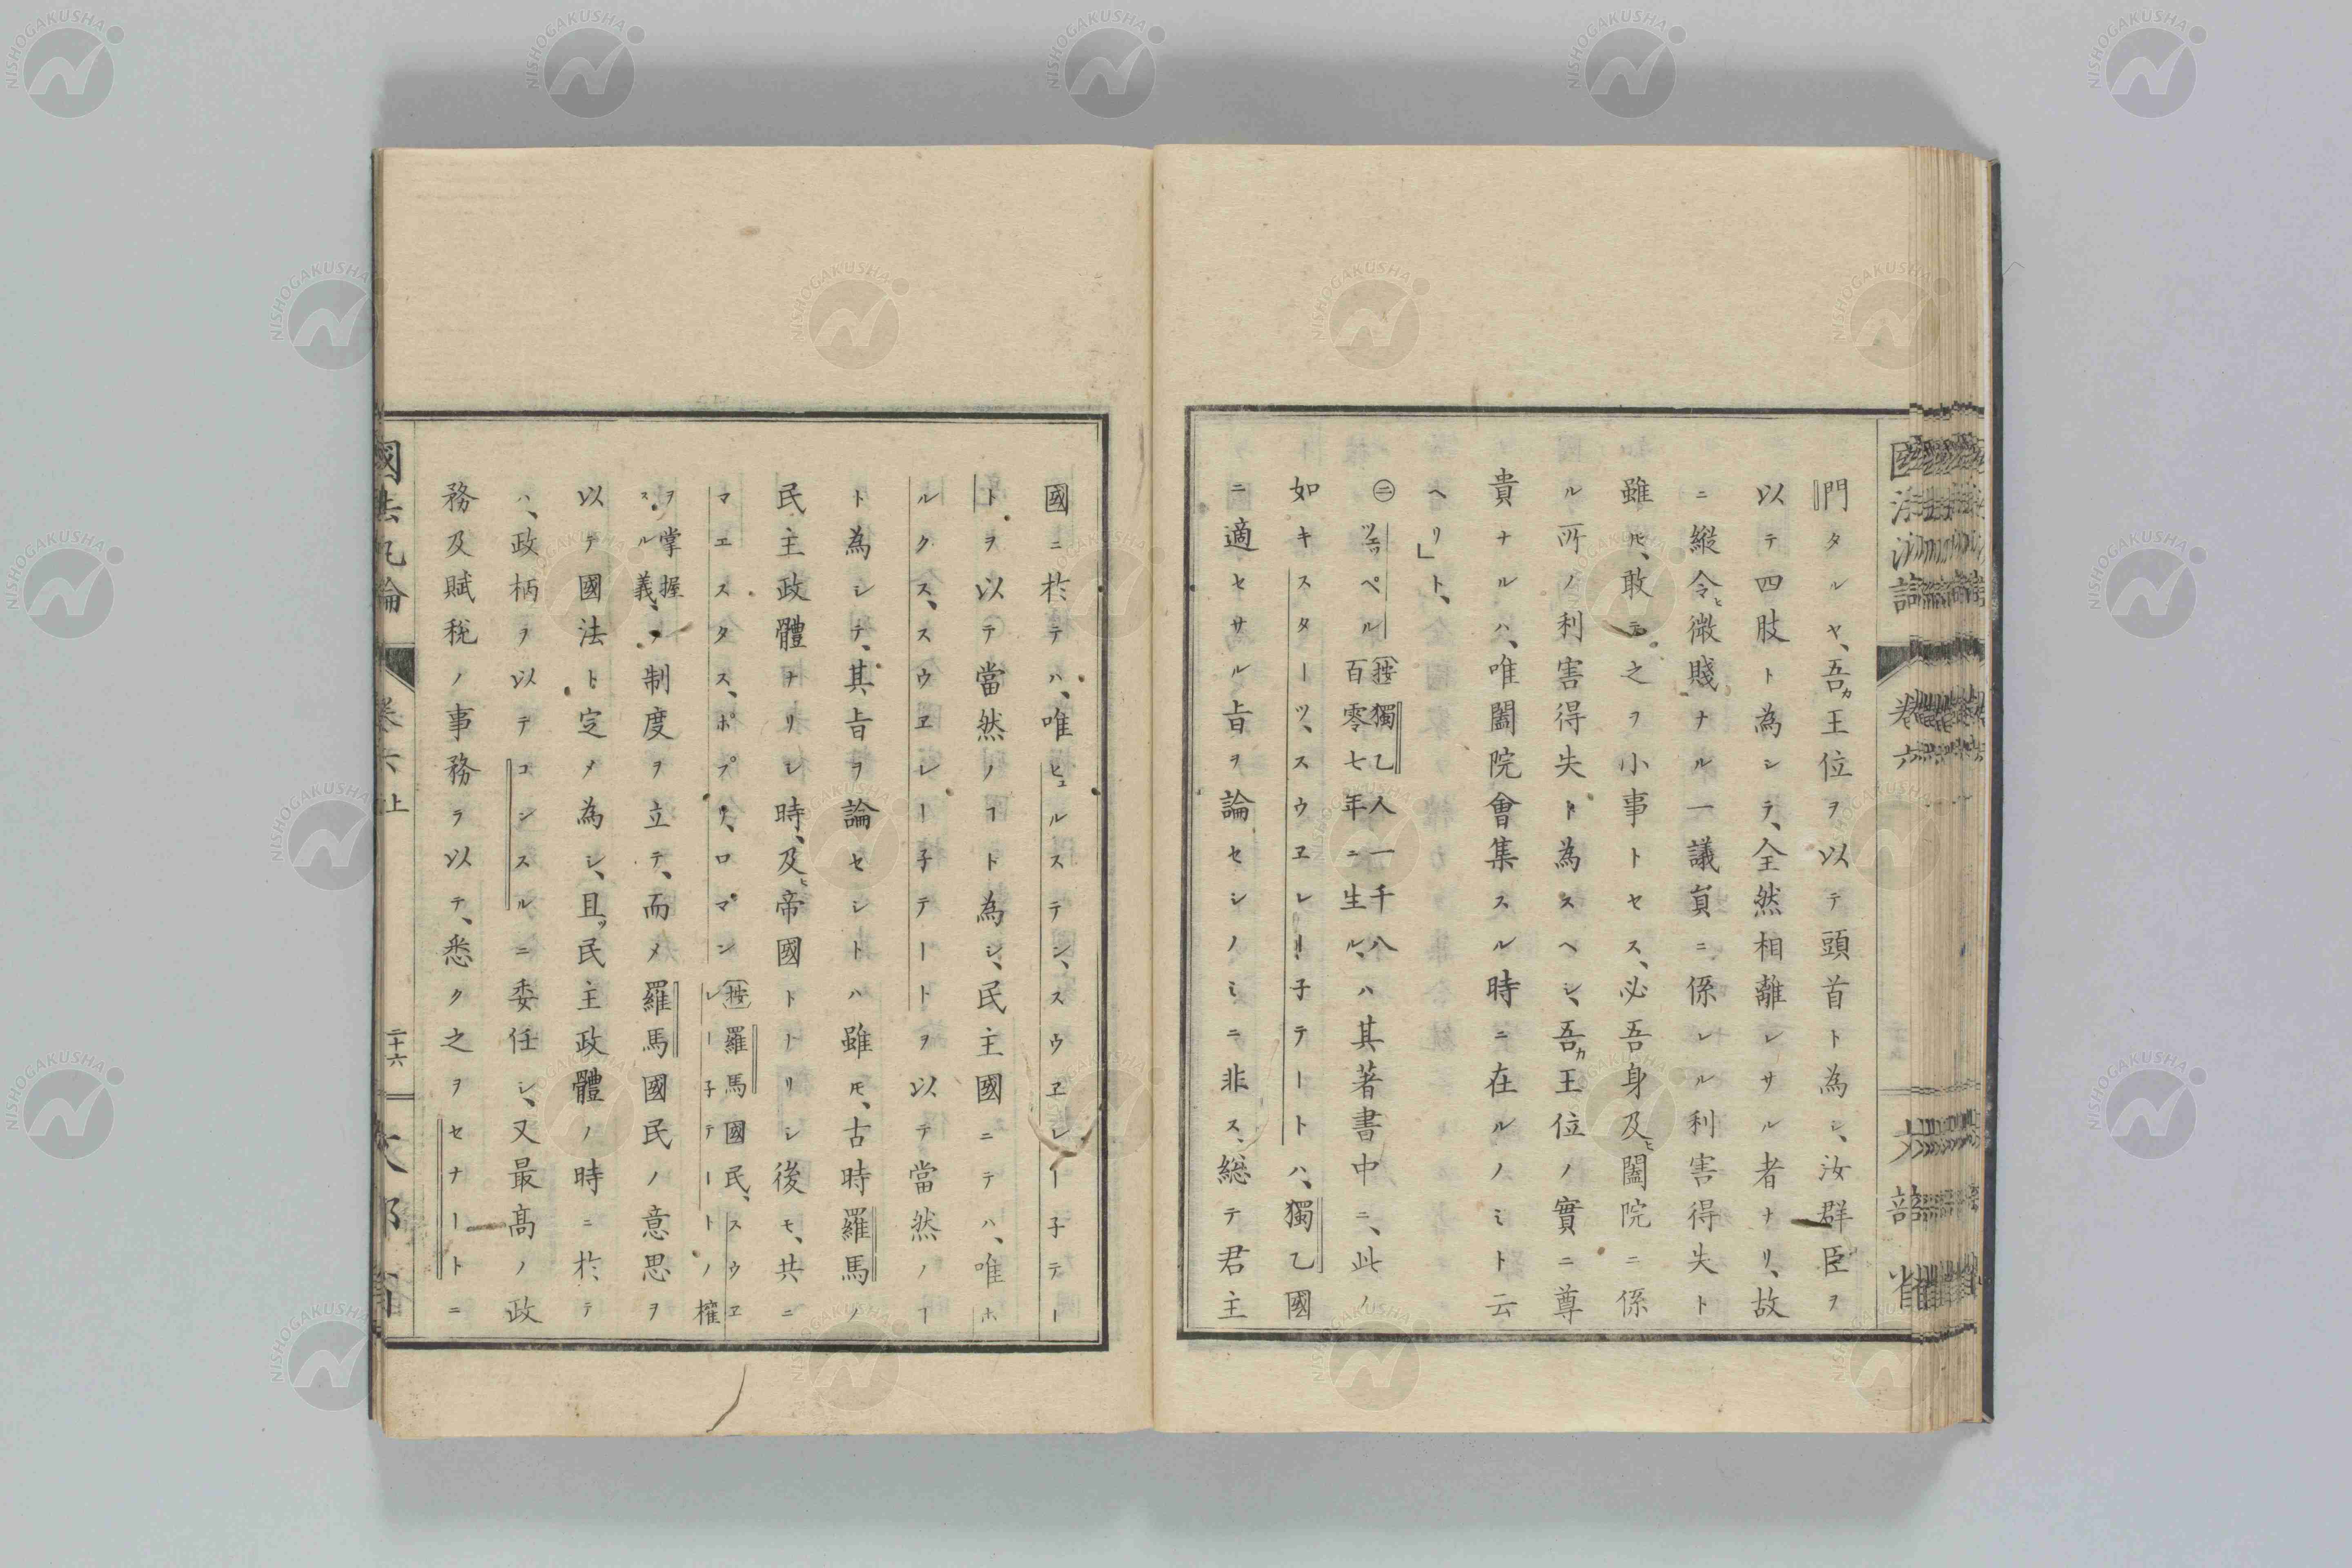 門タルヤ、吾カ王位ヲ以テ頭首ト為シ、汝群臣ヲ
以テ四肢ト為シテ、全然相離レサル者ナリ、故
ニ縱令ヒ微賤ナル一議員ニ係レル利害得失ト
雖𪜈、敢テ之ヲ小事トセス、必吾身及ヒ闔院ニ係
ル所ノ利害得失ト為スヘシ、吾カ王位ノ實ニ尊
貴ナルハ、唯闔院會集スル時ニ在ルノミト云
ヘリ」ト、
㊁ツェプペル(按獨乙人一千八百零七年ニ生ル、ハ其著書中ニ、此ノ
如キスターツ、スウヱレー子テートハ、獨乙國
ニ適セサル旨ヲ論セシノミニ非ス、総テ君主
國ニ於テハ、唯ヒュルステン、スウヱレー子テー
トヲ以テ當然ノヿト為シ、民主國ニテハ、唯ホ
ルクス、スウヱレー子テートヲ以テ當然ノヿ
ト為シテ、其旨ヲ論セシトハ雖𪜈、古時羅馬ノ
民主政體ナリシ時、及ヒ帝國トナリシ後モ、共ニ
マエスタス、ポプリ、ロマン(按羅馬國民、スウヱレー子テートノ權
ヲ掌握スル義、ノ制度ヲ立テ、而メ羅馬國民ノ意思ヲ
以テ國法ト定メ為シ、且ツ民主政體ノ時ニ於テ
ハ、政柄ヲ以テコンスルニ委任シ、又最高ノ政
務及賦税ノ事務ヲ以テ、悉ク之ヲセナートニ
國法汎論
卷六上
二十六
文部省